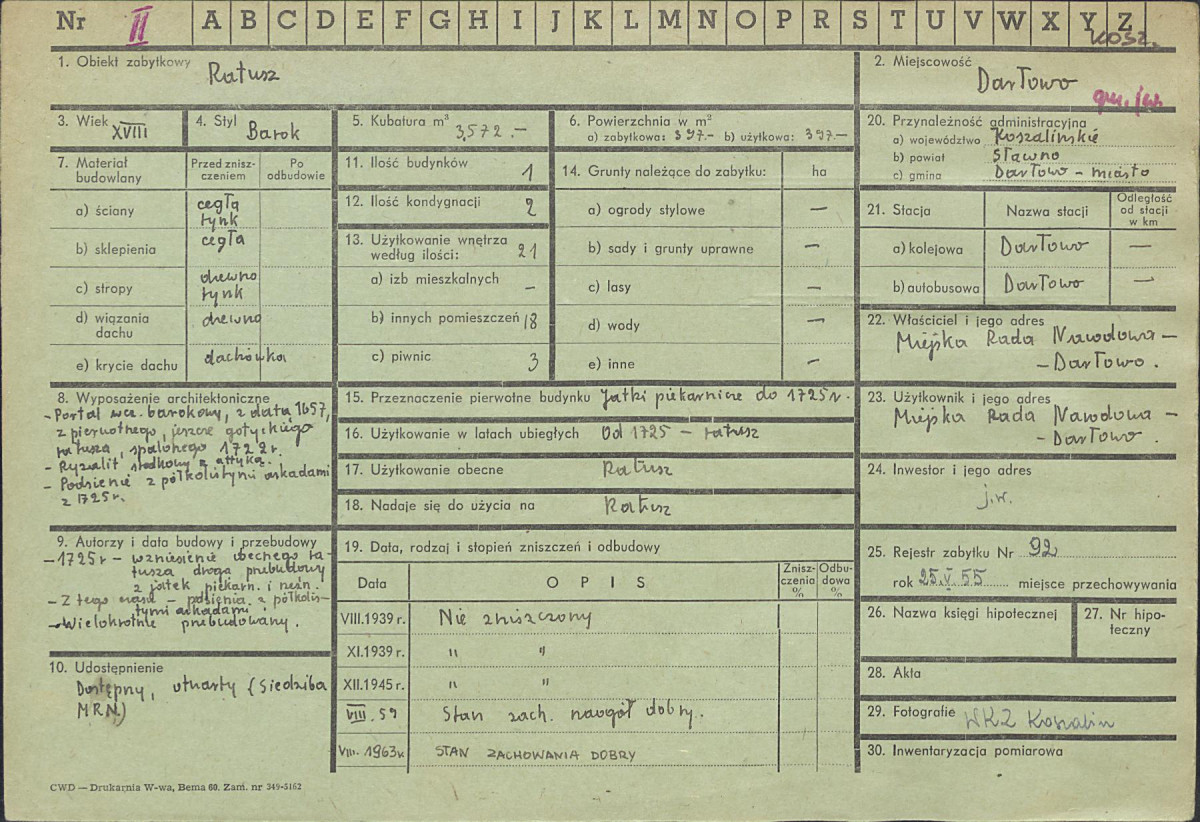 Nr II A B C D E F G H I J K L M N O P R S T U V W X Y Z
Kosz.
1. Obiekt zabytkowy Ratusz
2. Miejscowość
Darłowo
gm. jw.
3. Wiek XVIII
4. Styl Barok
5. Kubatura m³ 3,572.—
6. Powierzchnia w m²
a) zabytkowa: 397.— b) użytkowa: 397.—
20. Przynależność administracyjna
a) województwo Koszalińskie
b) powiat Sławno
c) gmina Darłowo – miasto
7. Materiał budowlany
Przed zniszczeniem
Po odbudowie
a) ściany cegła
tynk
b) sklepienia cegła
c) stropy drewno
tynk
d) wiązania
dachu drewno
e) krycie dachu dachówka
11. Ilość budynków 1
12. Ilość kondygnacji 2
13. Użytkowanie wnętrza
według ilości: 21
a) izb mieszkalnych –
b) innych pomieszczeń 18
c) piwnic 3
14. Grunty należące do zabytku: ha
a) ogrody stylowe —
b) sady i grunty uprawne —
c) lasy —
d) wody —
e) inne —
21. Stacja Nazwa stacji Odległość
od stacji
w km
a) kolejowa Darłowo —
b) autobusowa Darłowo —
22. Właściciel i jego adres
Miejska Rada Narodowa –
– Darłowo.
8. Wyposażenie architektoniczne
– Portal wcz. barokowy, z datą 1657,
z pierwotnego, jeszcze gotyckiego
ratusza, spalonego 1722 r.
– Ryzalit środkowy z attyką.
– Podsienie z półkolistymi arkadami
z 1725 r.
15. Przeznaczenie pierwotne budynku Jatki piekarnicze do 1725 r.
16. Użytkowanie w latach ubiegłych Od 1725 – ratusz
17. Użytkowanie obecne Ratusz
18. Nadaje się do użycia na Ratusz
23. Użytkownik i jego adres
Miejska Rada Narodowa –
– Darłowo.
24. Inwestor i jego adres
j.w.
9. Autorzy i data budowy i przebudowy
– 1725 r – wzniesienie obecnego ra-
tusza drogą przebudowy
z jatek piekarn. i rzeźn.
– Z tego czasu – podsienia z półkolis-
tymi arkadami.
– Wielokrotnie przebudowany.
10. Udostępnienie
Dostępny, otwarty (Siedziba
MRN)
19. Data, rodzaj i stopień zniszczeń i odbudowy
Data OPIS Znisz-
czenia
o/o
Odbu-
dowa
o/o
VIII.1939 r. Nie zniszczony
XI.1939 r. " "
XII.1945 r. " "
VIII.59 Stan zach. naogół dobry.
VIII. 1963 r. STAN ZACHOWANIA DOBRY
25. Rejestr zabytku Nr 92
rok 25.V.55 miejsce przechowywania
26. Nazwa księgi hipotecznej
27. Nr hipo-
teczny
28. Akta
29. Fotografie WKZ Koszalin
30. Inwentaryzacja pomiarowa
CWD — Drukarnia W-wa, Bema 60. Zam. nr 349-5162